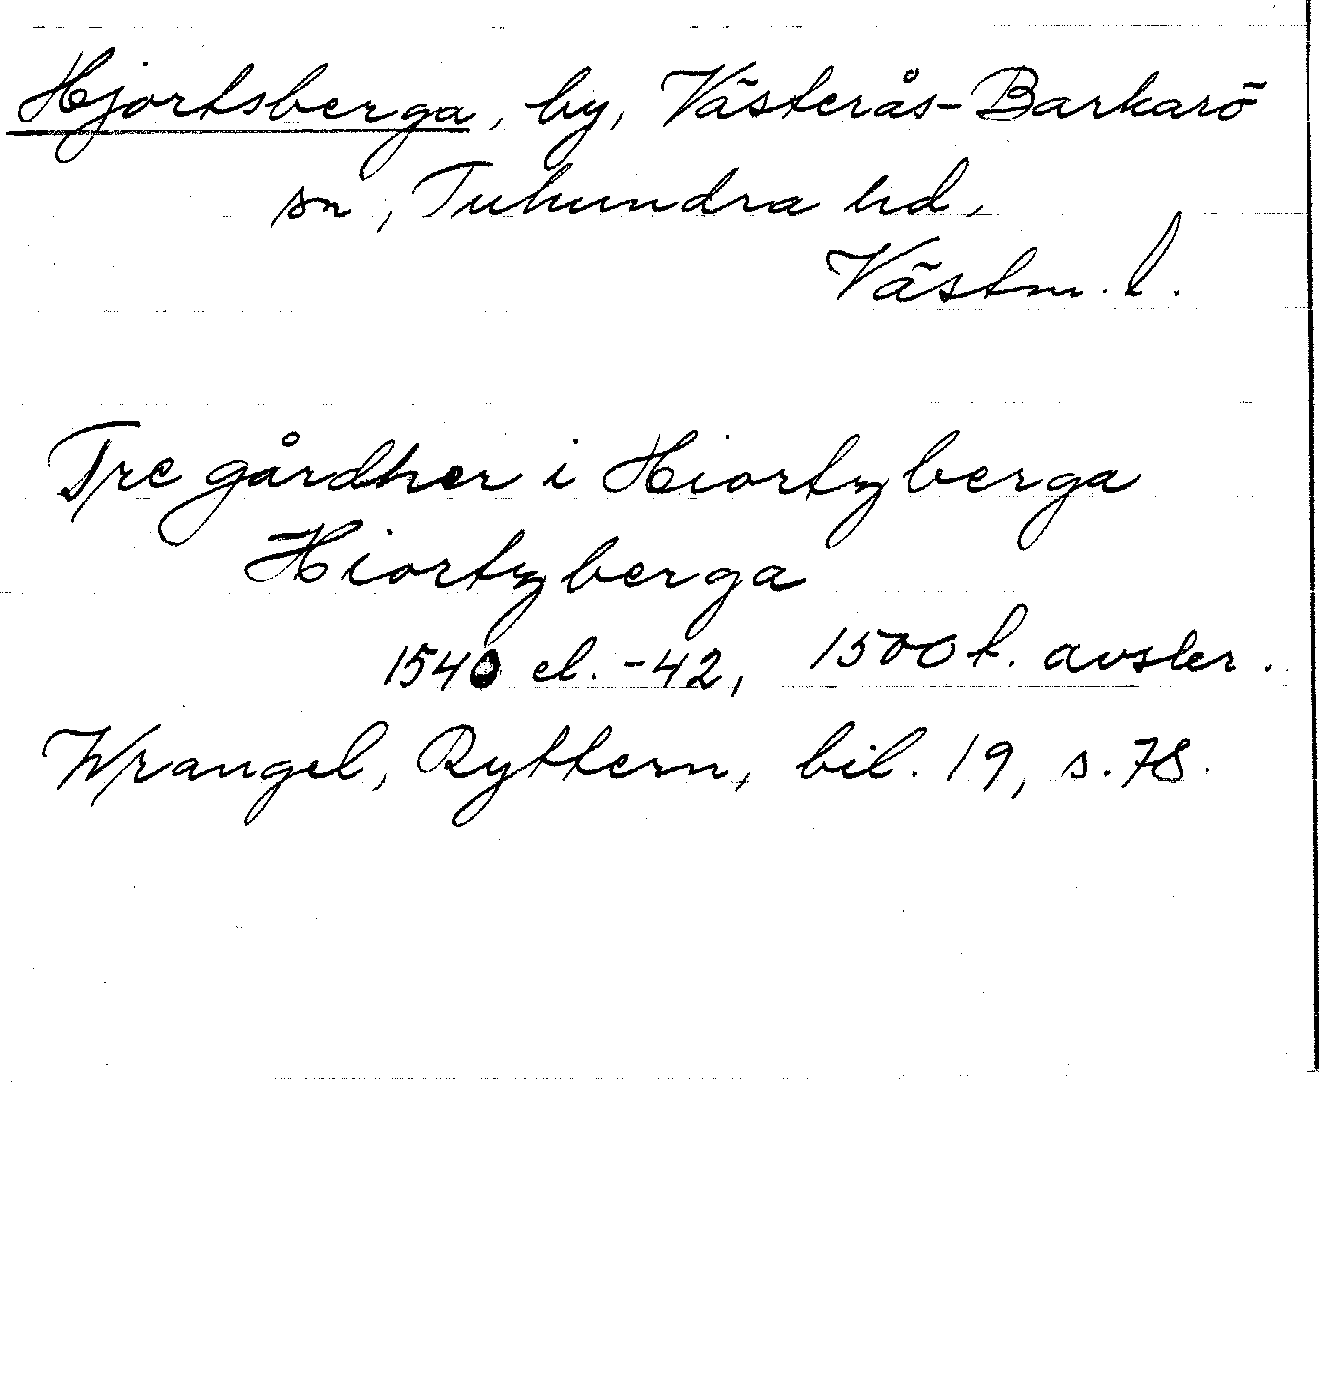 Hjortsberga, by, Västerås-Barkarö
sn, Tuhundra hd,
Västm. l.
Tre gårdher i Hiortzberga
Hiortzberga
1540 el. -42, 1500t. avskr.
Wrangel, Ryttern, bil. 19, s. 78.